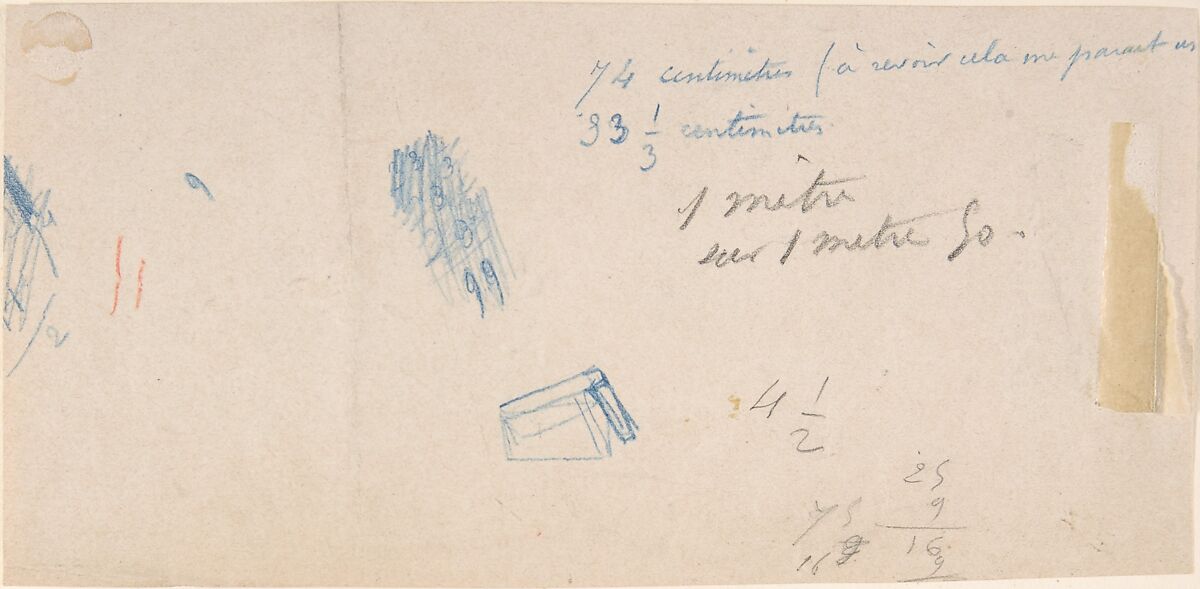 74 centimètres (à revoir cela me parait
33 1/3 centimetres
1 mètre
sur 1 metre 50.
9
99
2
4 1/2
25
9
16
9
75
16